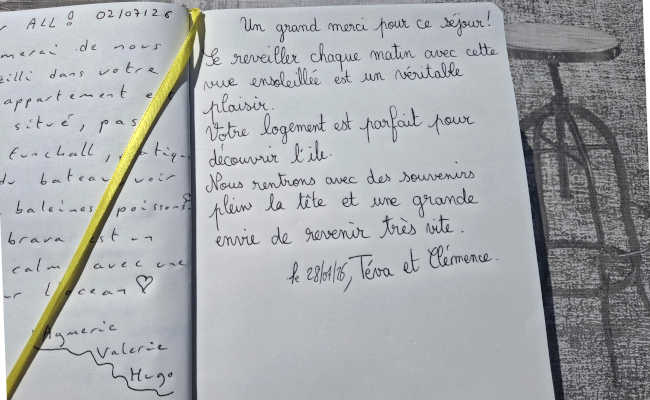 ALL ! 02/07/26
merci de nous
dans votre
appartement
situé, pas
Funchall,
du bateau voir
baleines poissons
brava est un
calm avec une
l'ocean ♡
Aymeric
Valerie
Hugo
Un grand merci pour ce séjour!
Se reveiller chaque matin avec cette
vue ensoleillée est un véritable
plaisir.
Votre logement est parfait pour
découvrir l'ile.
Nous rentrons avec des souvenirs
plein la tête et une grande
envie de revenir très vite.
le Téva et Clémence.